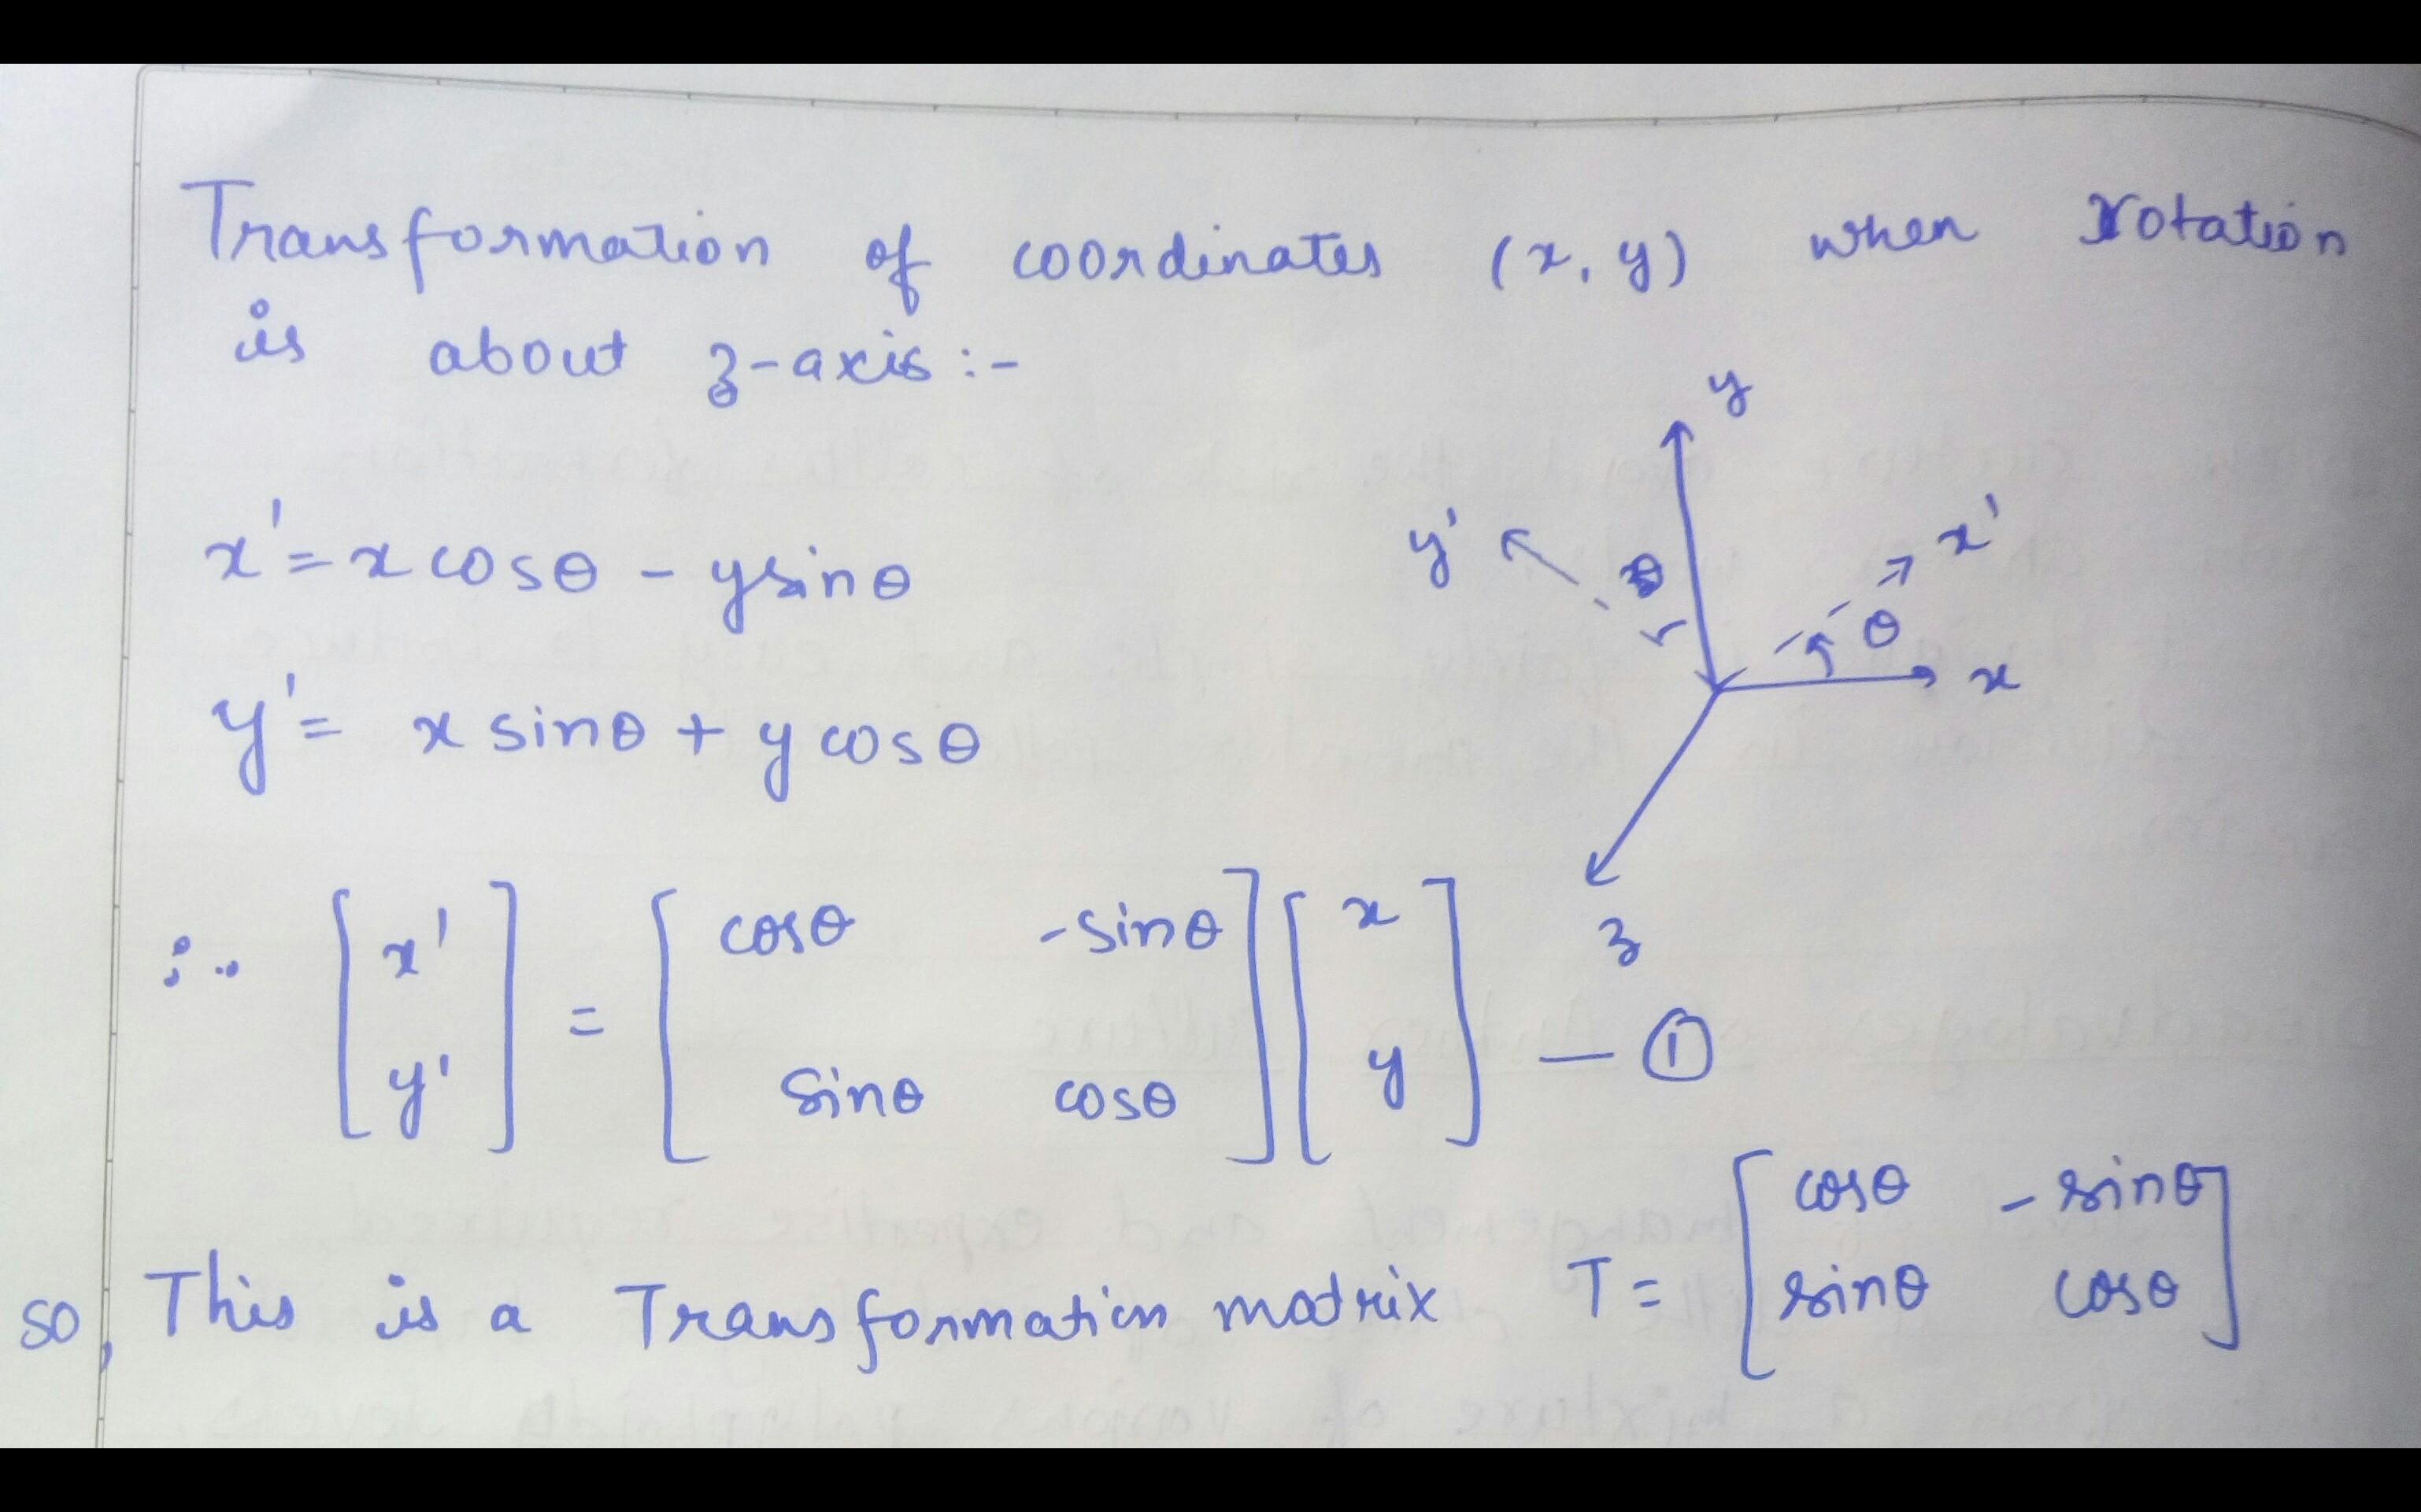 Transformation of coordinates (x, y) when rotation
is about z-axis :-
y
x' = x cosθ - y sinθ
y' θ x'
θ
x
y' = x sinθ + y cosθ
z
∴ [x' y'] = [cosθ -sinθ sinθ cosθ] [x y] — ①
so, This is a Transformation matrix T = [cosθ - sinθ sinθ cosθ]